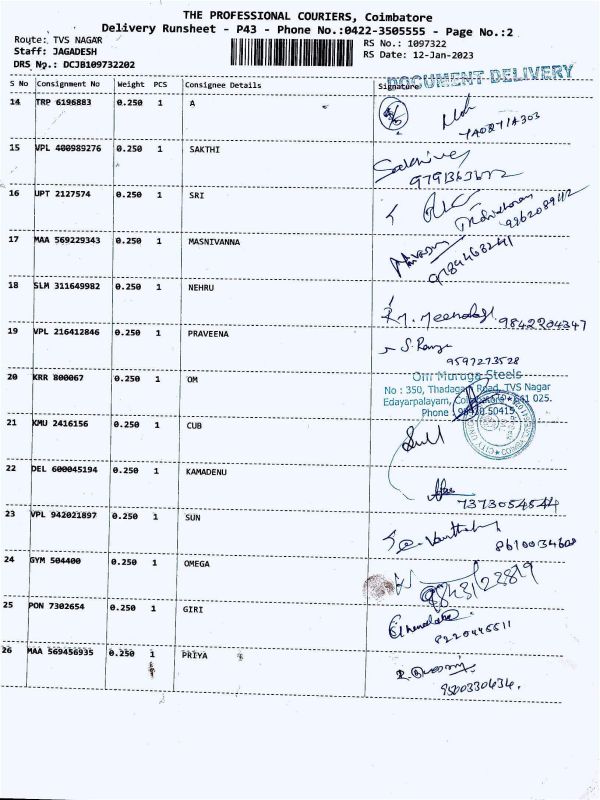 THE PROFESSIONAL COURIERS, Coimbatore
Delivery Runsheet - P43 - Phone No.:0422-3505555 - Page No.:2
Route: TVS NAGAR
Staff: JAGADESH
DRS No.: DCJB109732202
RS No.: 1097322
RS Date: 12-Jan-2023
DOCUMENT DELIVERY
S No Consignment No Weight PCS Consignee Details Signature
14 TRP 6196883 0.250 1 A
15 VPL 400989276 0.250 1 SAKTHI
9791363672
16 UPT 2127574 0.250 1 SRI
17 MAA 569229343 0.250 1 MASNIVANNA
18 SLM 311649982 0.250 1 NEHRU
9842204347
19 VPL 216412846 0.250 1 PRAVEENA
9597273528
20 KRR 800067 0.250 1 OM
Om Muruga Steels
No : 350, Thadagam Road, TVS Nagar
Edayarpalayam, Coimbatore - 641 025.
Phone
21 KMU 2416156 0.250 1 CUB
22 DEL 600045194 0.250 1 KAMADENU
7373054544
23 VPL 942021897 0.250 1 SUN
24 GYM 504400 0.250 1 OMEGA
25 PON 7302654 0.250 1 GIRI
8220445511
26 MAA 569456935 0.250 1 PRIYA
9500330434.